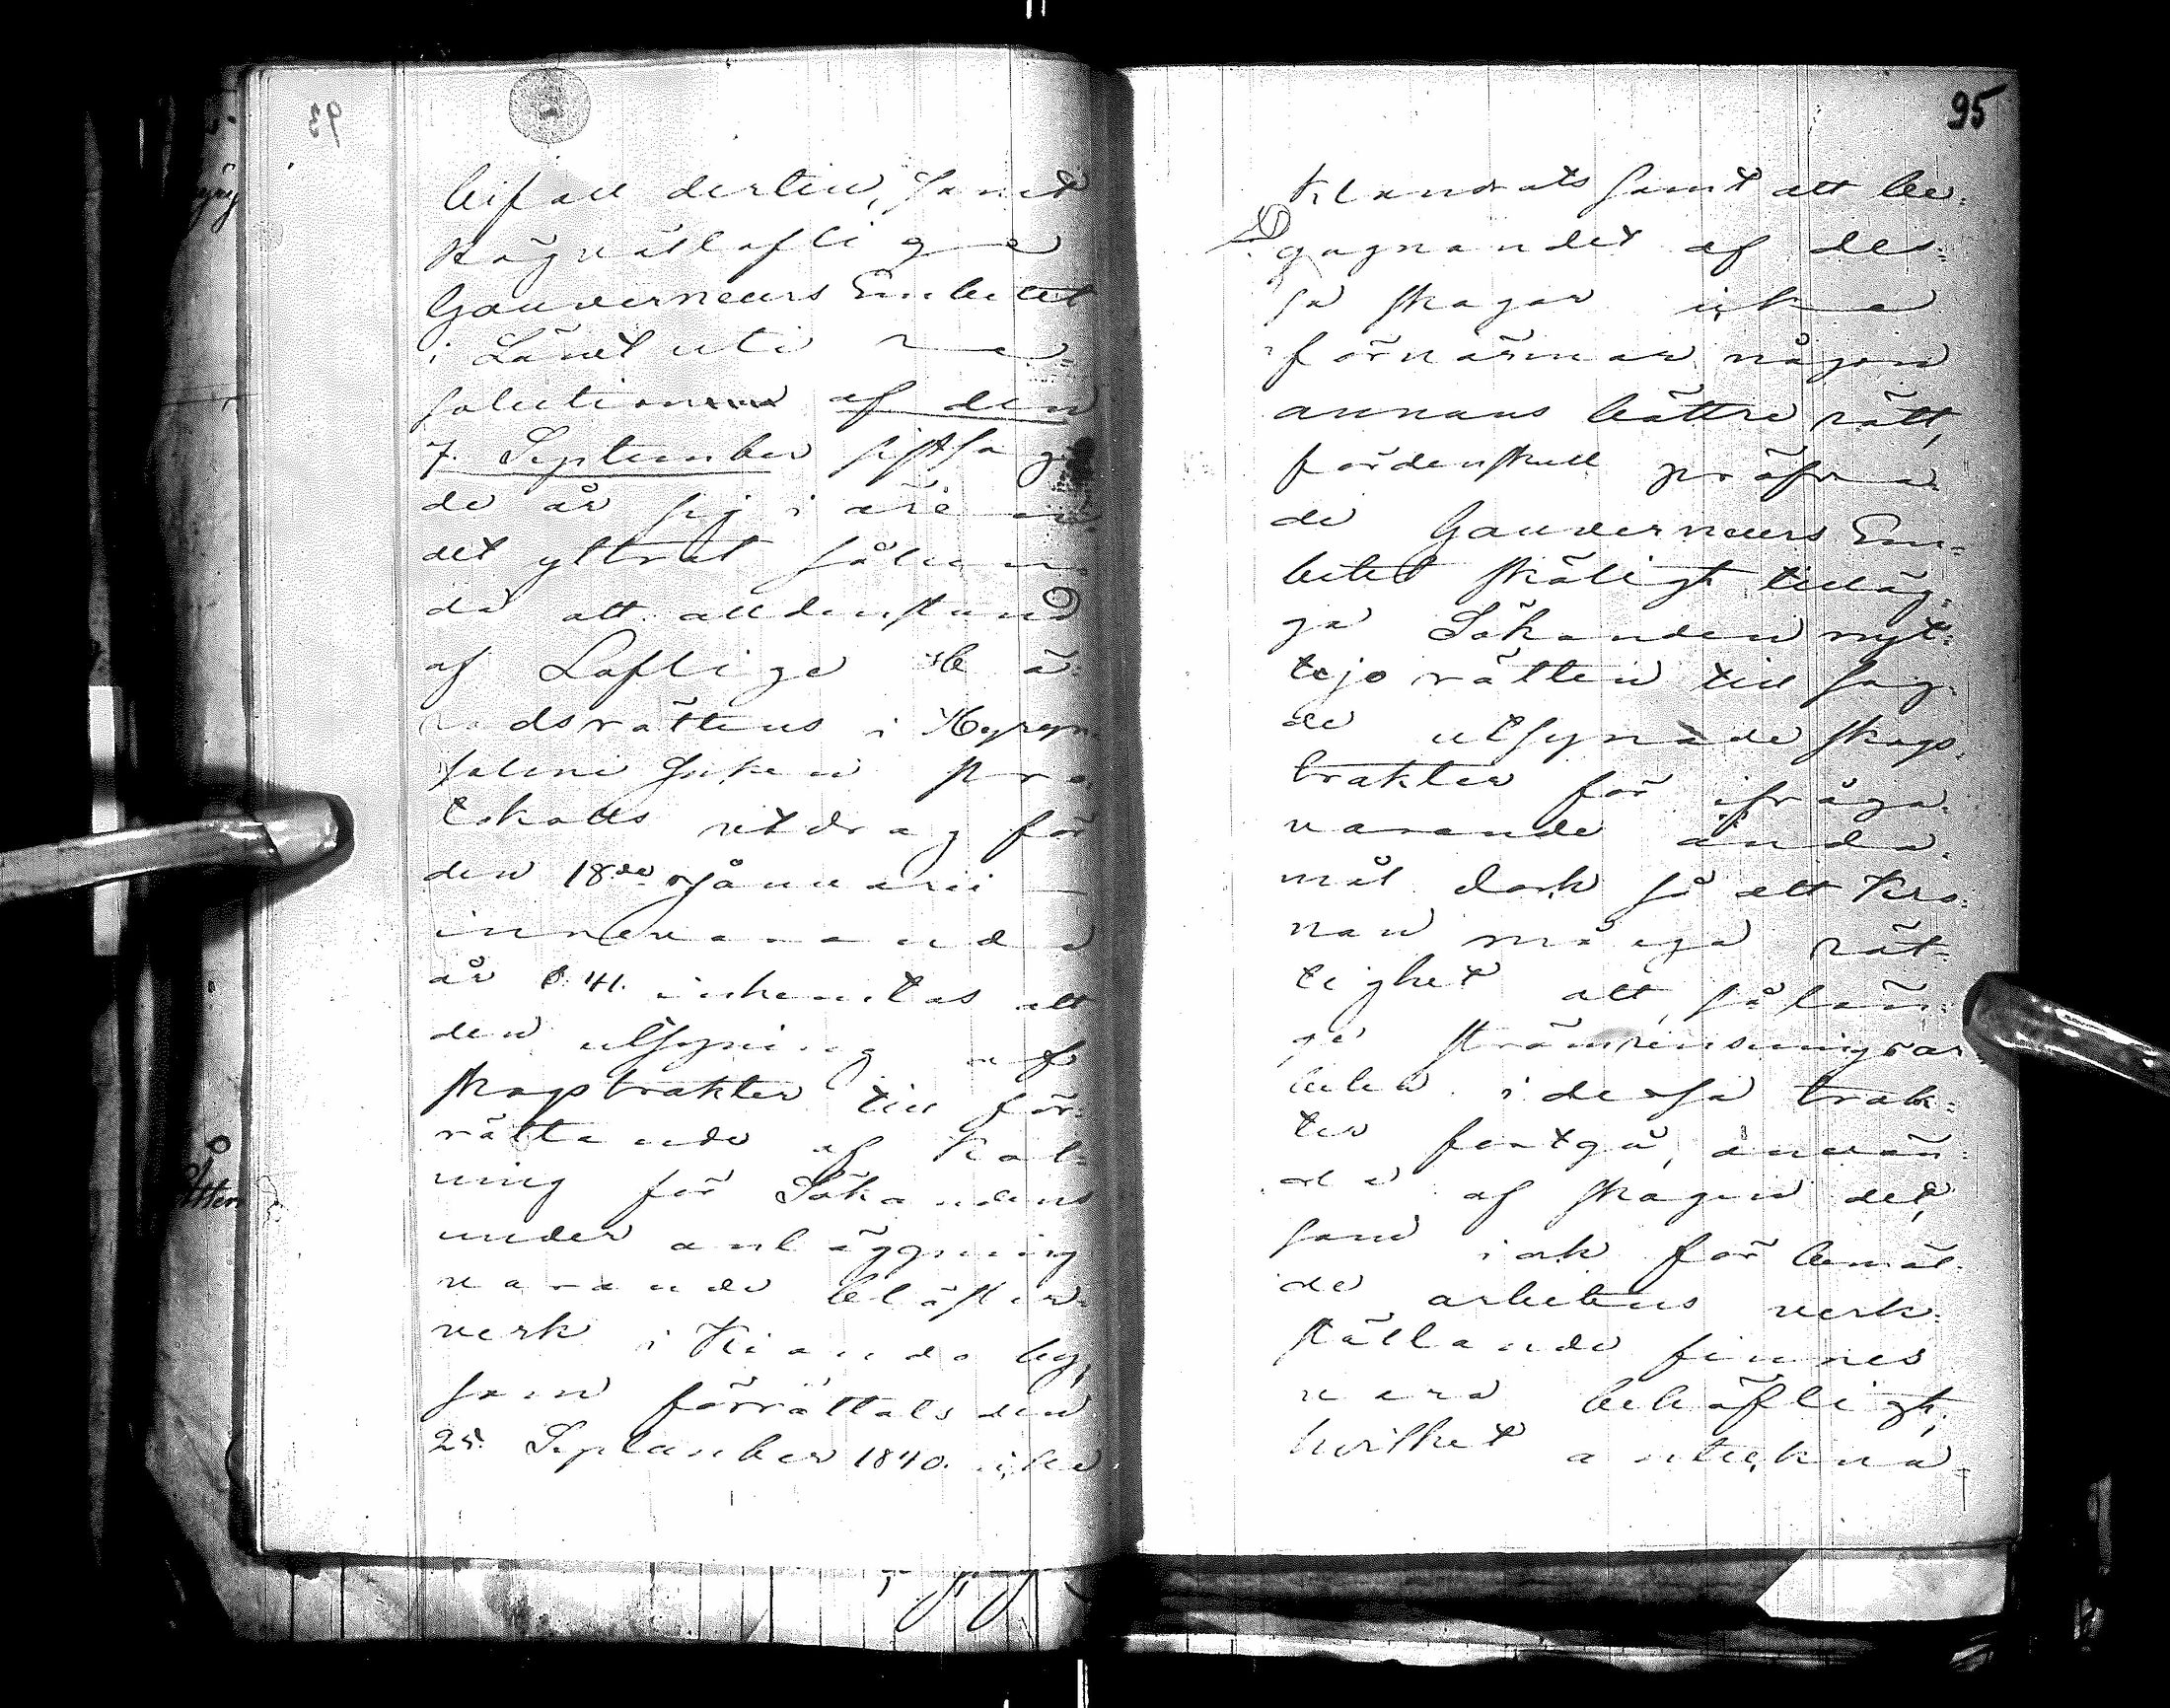 bifall dertill, samt
Högvälloflige
Gouverneurs Embetet
i Länet uti re=
solution af den
7. September sistsag
de år sig i ären
det yttrat sålun
da att alldenstund
af Lofliga Hä=
radsrättens i Hyryn
salmi Socken Pro
tokolls utdrag för
den 18de Januarii
innevarande
år 841. inhemtas att
den utsyning af
skogstrakter till för=
rättande af Kol=
ning för Sökandens
under anläggning
varande bläster=
verk i Kianda by,
som förrättats den
25. September 1840. icke
95
klandrats samt att be=
gagnandet af des=
sa skogar icke
förnärmar någon
annans bättre rätt,
fördenskull pröfva=
de Gouverneurs Em=
betet skäligt tilläg=
ga Sökanden nyt=
tjo rätten till sag=
de utsynade skogs=
trakter för ifråga=
varande ända=
mål dock så att Kro=
nan må ega rät=
tighet att, så län=
ge strömrensningsar
beten i dessa trak=
ter fortgå, använ=
da af skogen det,
som i och för bemäl=
de arbetens verk=
ställande finnes
vara behöfligt,
hvilket anteckna=